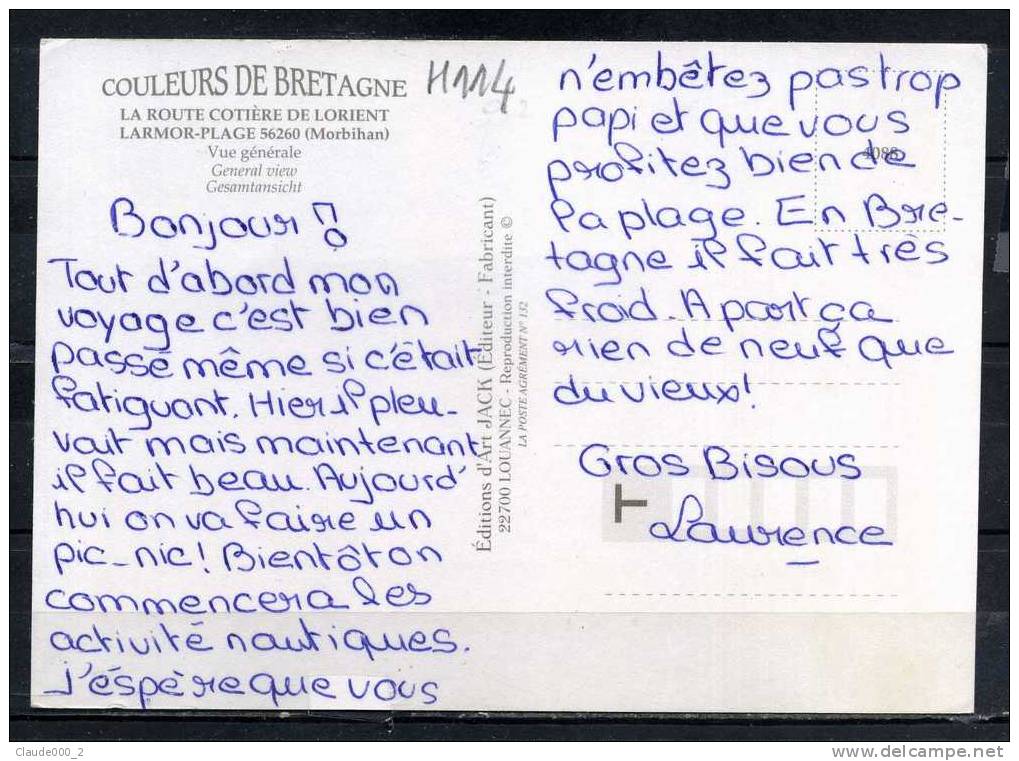 COULEURS DE BRETAGNE
H114
LA ROUTE COTIÈRE DE LORIENT
LARMOR-PLAGE 56260 (Morbihan)
Vue générale
General view
Gesamtansicht
Bonjour !
Tout d'abord mon
voyage c'est bien
passé même si c'était
fatiguant. Hier il pleu-
vait mais maintenant
il fait beau. Aujourd'
hui on va faire un
pic-nic! Bientôt on
commencera les
activité nautiques.
J'éspère que vous
Éditions d'Art JACK (Éditeur - Fabricant)
22700 LOUANNEC - Reproduction interdite ©
LA POSTE AGRÉMENT N° 132
n'embêtez pas trop
papi et que vous
profitez bien de
la plage. En Bre-
tagne il fait très
froid. A part ça
rien de neuf que
du vieux!
Gros Bisous
Laurence
Claude000_2
www.delcampe.net